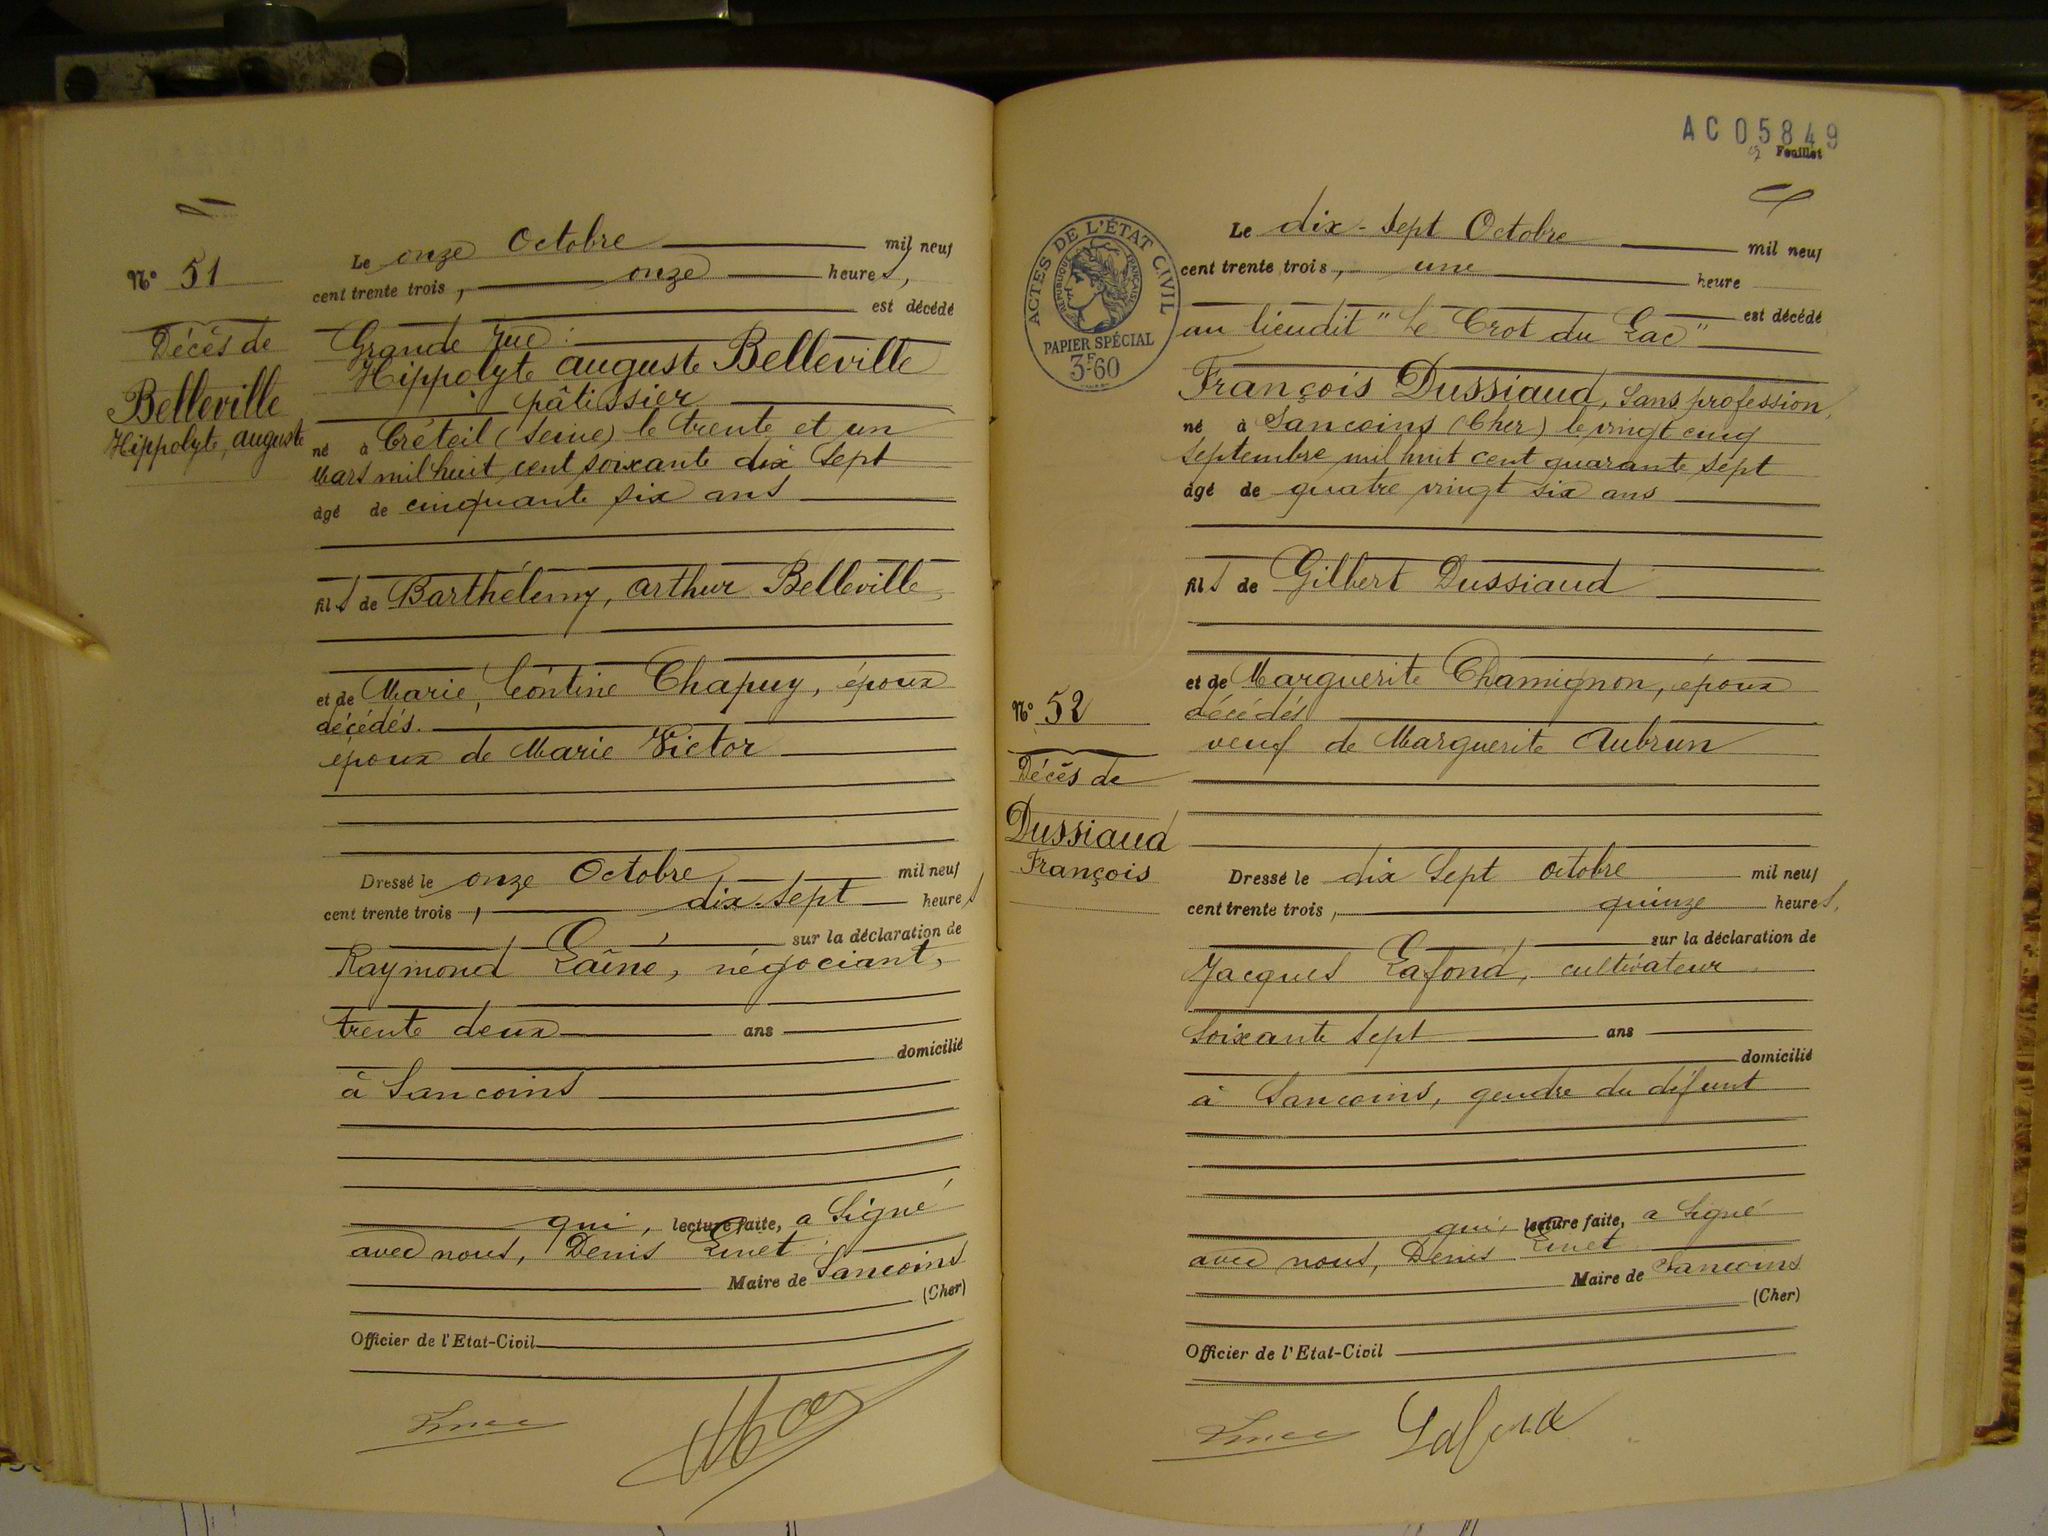 N° 51
Décès de
Belleville
Hippolyte, auguste
Le onze Octobre mil neuf
cent trente trois, onze heures,
est décédé
Grande rue :
Hippolyte auguste Belleville
pâtissier
né à Créteil (Seine) le trente et un
Mars mil huit cent soixante dix sept
âgé de cinquante six ans
fils de Barthélemy, arthur Belleville
et de Marie, Léontine Chapuy, époux
décédés.
époux de Marie Victor
Dressé le onze Octobre mil neuf
cent trente trois, dix-sept heures
sur la déclaration de
Raymond Laîné, négociant,
trente deux ans
domicilié
à Sancoins
qui, lecture faite, a signé
avec nous, Denis
Maire de Sancoins
(Cher)
Officier de l'Etat-Civil
AC 05849
Feuillet
ACTES DE L'ÉTAT CIVIL
RÉPUBLIQUE FRANÇAISE
PAPIER SPÉCIAL
3F60
Le dix-sept Octobre mil neuf
cent trente trois, une heure
est décédé
au lieudit "Le Crot du Lac"
François Dussiaud, sans profession,
né à Sancoins (Cher) le vingt cinq
septembre mil huit cent quarante sept
âgé de quatre vingt six ans
fils de Gilbert Dussiaud
et de Marguerite Chamignon, époux
décédés
veuf de Marguerite Aubrun
N° 52
Décès de
Dussiaud
François
Dressé le dix sept octobre mil neuf
cent trente trois, quinze heures,
sur la déclaration de
Jacques Lafond, cultivateur
soixante sept ans
domicilié
à Sancoins, gendre du défunt
qui, lecture faite, a signé
avec nous, Denis
Maire de Sancoins
(Cher)
Officier de l'Etat-Civil
Lafond